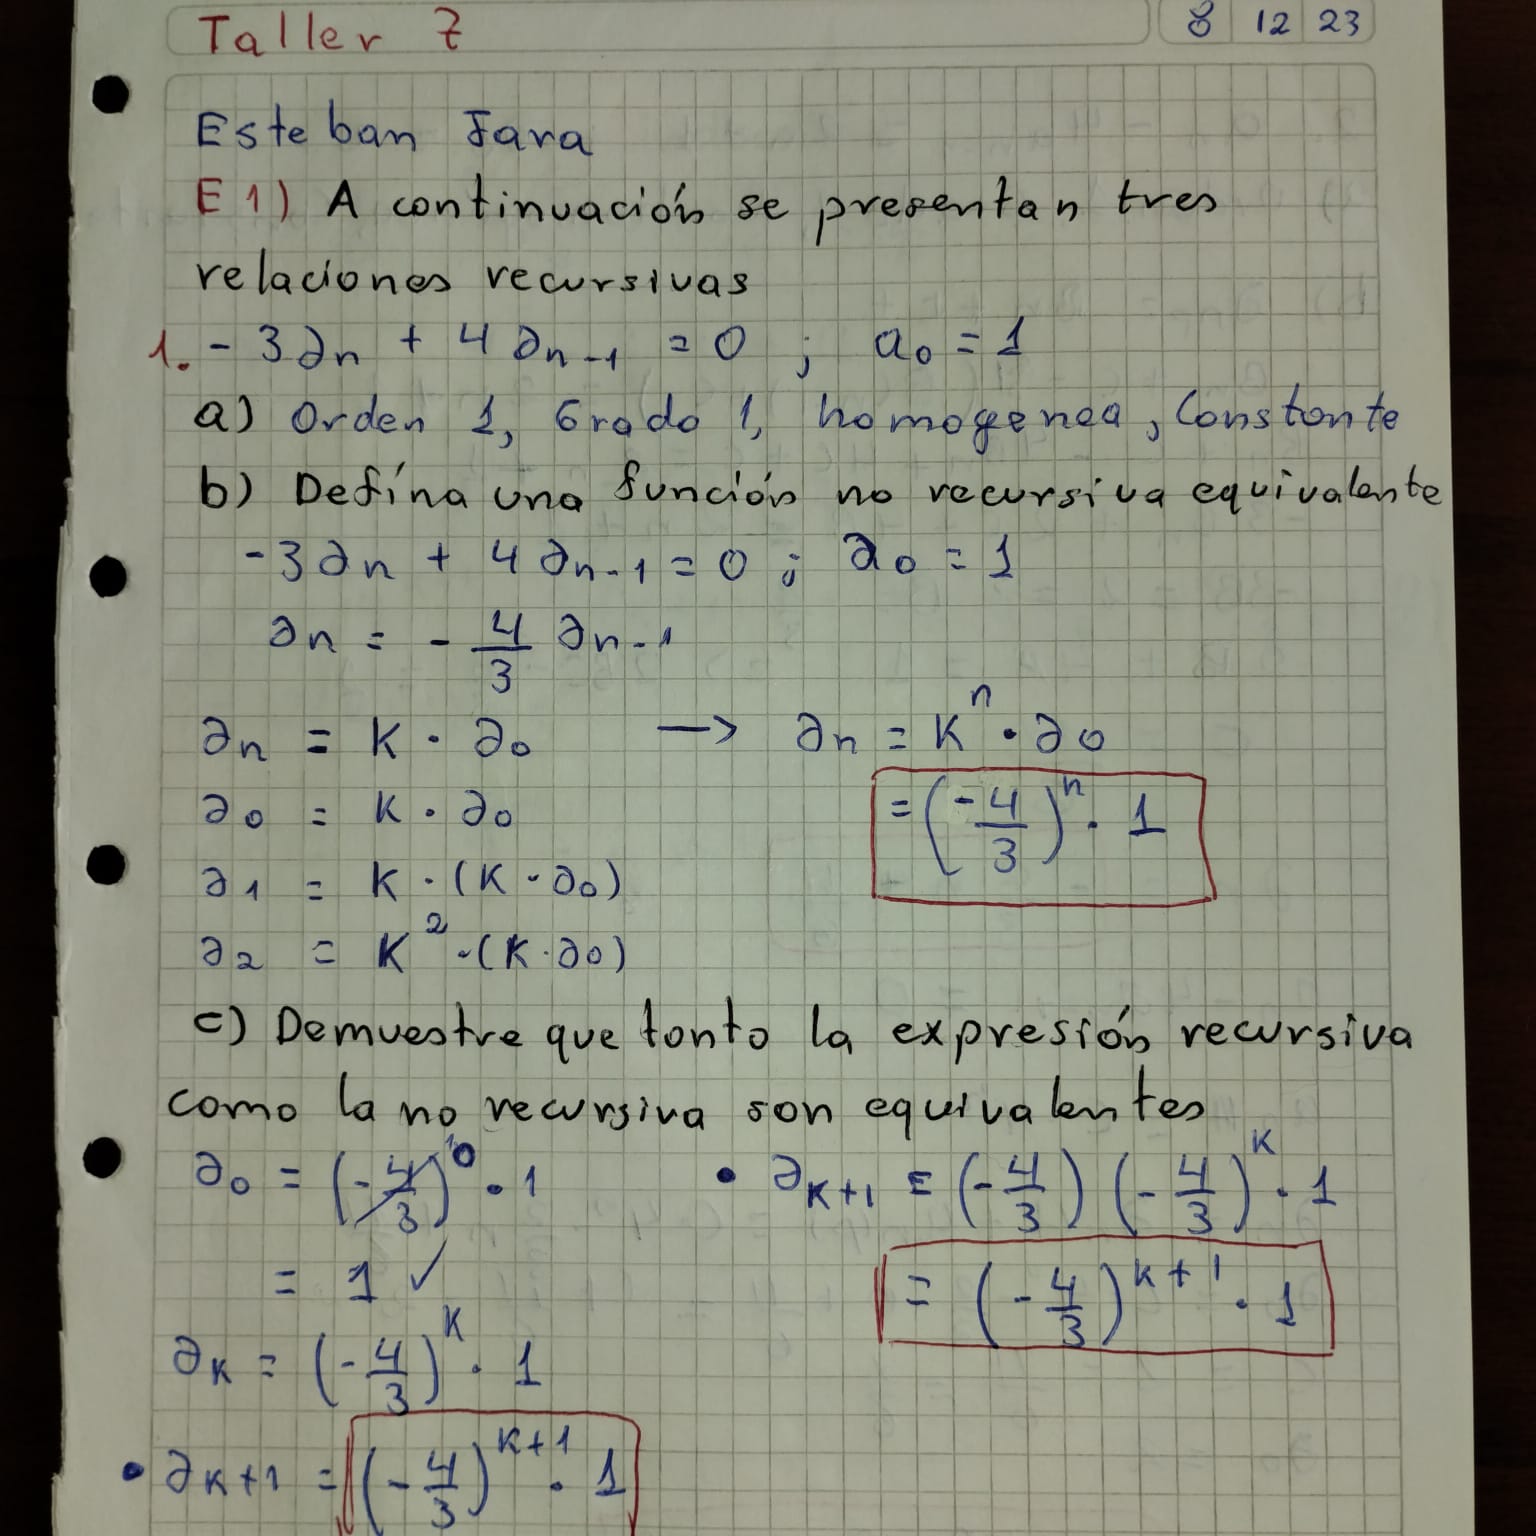 Taller 7 8 12 23
Esteban Jara
E1) A continuación se presentan tres
relaciones recursivas
1. -3an + 4an-1 = 0 ; a0 = 1
a) Orden 1, Grado 1, homogenea, Constante
b) Defína una función no recursiva equivalente
-3an + 4an-1 = 0 ; a0 = 1
an = - 4/3 an-1
an = K · a0 → an = K^n · a0
a0 = K · a0 = (-4/3)^n · 1
a1 = K · (K · a0)
a2 = K^2 · (K · a0)
c) Demuestre que tanto la expresión recursiva
como la no recursiva son equivalentes
a0 = (-4/3)^0 · 1 • aK+1 = (-4/3) (-4/3)^K · 1
= 1 ✓ = (-4/3)^K+1 · 1
aK = (-4/3)^K · 1
• aK+1 = (-4/3)^K+1 · 1